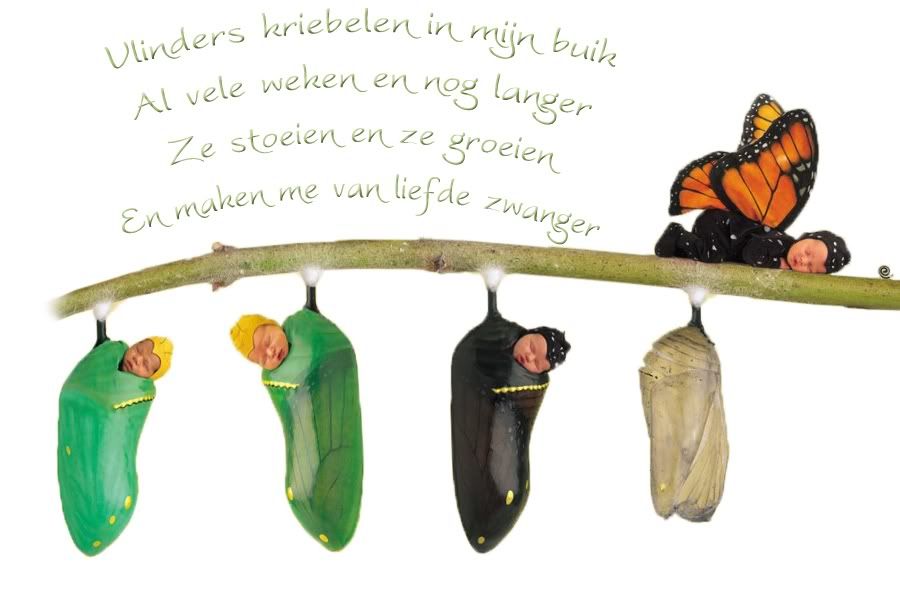 Vlinders kriebelen in mijn buik
Al vele weken en nog langer
Ze stoeien en ze groeien
En maken me van liefde zwanger